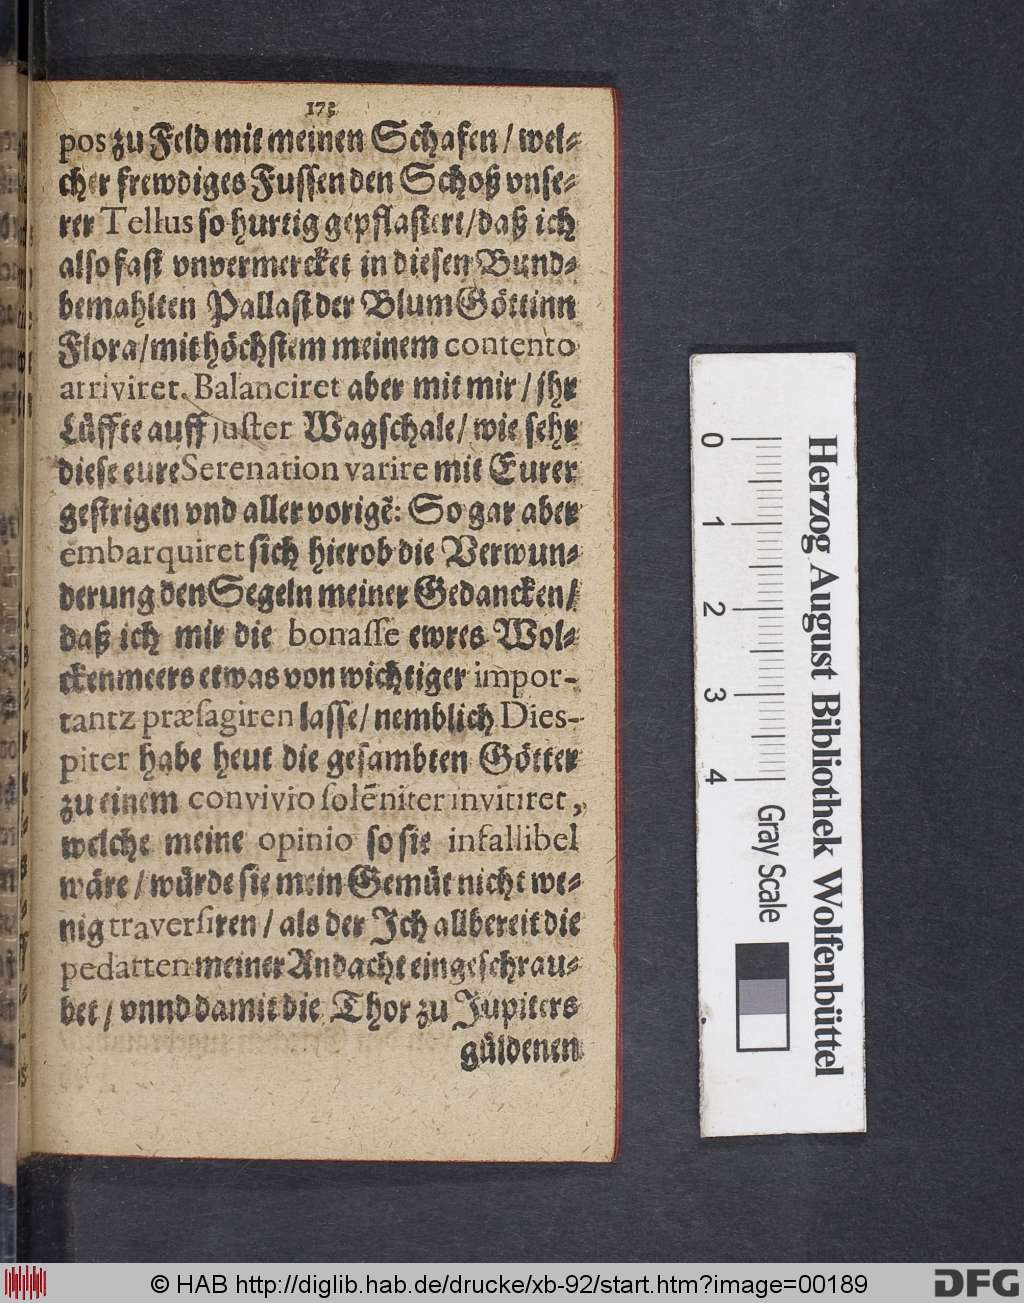 173
pos zu Feld mit meinen Schafen / wel-
cher frewdiges Fussen den Schoß vnse-
rer Tellus so hurtig gepflastert / daß ich
also fast vnvermercket in diesen Bund-
bemahlten Pallast der Blum Göttinn
Flora / mit höchstem meinem contento
arriviret. Balanciret aber mit mir / jhr
Lüffte auff juster Wagschale / wie sehr
diese eure Serenation varire mit Eurer
gestrigen vnd aller vorigẽ: So gar aber
embarquiret sich hierob die Verwun-
derung den Segeln meiner Gedancken /
daß ich mir die bonasse ewres Wol-
ckenmeers etwas von wichtiger impor-
tantz præsagiren lasse / nemblich Dies-
piter habe heut die gesambten Götter
zu einem convivio solẽniter invitiret,
welche meine opinio so sie infallibel
wäre / würde sie mein Gemüt nicht we-
nig traversiren / als der Ich allbereit die
pedatten meiner Andacht eingeschrau-
bet / vnnd damit die Thor zu Jupiters
güldenen
0 1 2 3 4
Herzog August Bibliothek Wolfenbüttel
Gray Scale
© HAB http://diglib.hab.de/drucke/xb-92/start.htm?image=00189
DFG